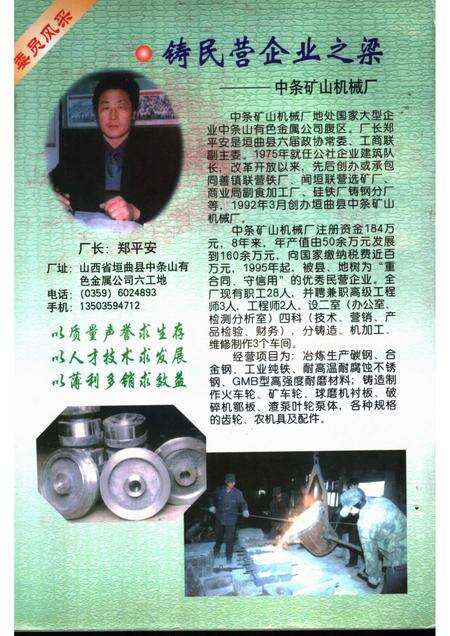 委员风采
铸民营企业之梁
——中条矿山机械厂
中条矿山机械厂地处国家大型企
业中条山有色金属公司腹区。厂长郑
平安是垣曲县六届政协常委、工商联
副主委。1975年就任公社企业建筑队
长,改革开放以来,先后创办或承包
同善镇联营铁厂、闻垣联营选矿厂、
商业局副食加工厂、硅铁厂铸钢分厂
等,1992年3月创办垣曲县中条矿山
机械厂。
中条矿山机械厂注册资金184万
元,8年来,年产值由50余万元发展
到160余万元,向国家缴纳税费近百
万元,1995年起,被县、地树为“重
合同、守信用”的优秀民营企业。全
厂现有职工28人,并聘兼职高级工程
师3人,工程师2人。设二室(办公室、
检测分析室)四科(技术、营销、产
品检验、财务),分铸造、机加工、
维修制作3个车间。
经营项目为:冶炼生产碳钢、合
金钢、工业纯铁、耐高温耐腐蚀不锈
钢、GMB型高强度耐磨材料;铸造制
作火车轮、矿车轮、球磨机衬板、破
碎机鄂板、渣泵叶轮泵体,各种规格
的齿轮、农机具及配件。
厂长:郑平安
厂址:山西省垣曲县中条山有
色金属公司六工地
电话:(0359)6024893
手机:13503594712
以质量声誉求生存
以人才技术求发展
以薄利多销求效益